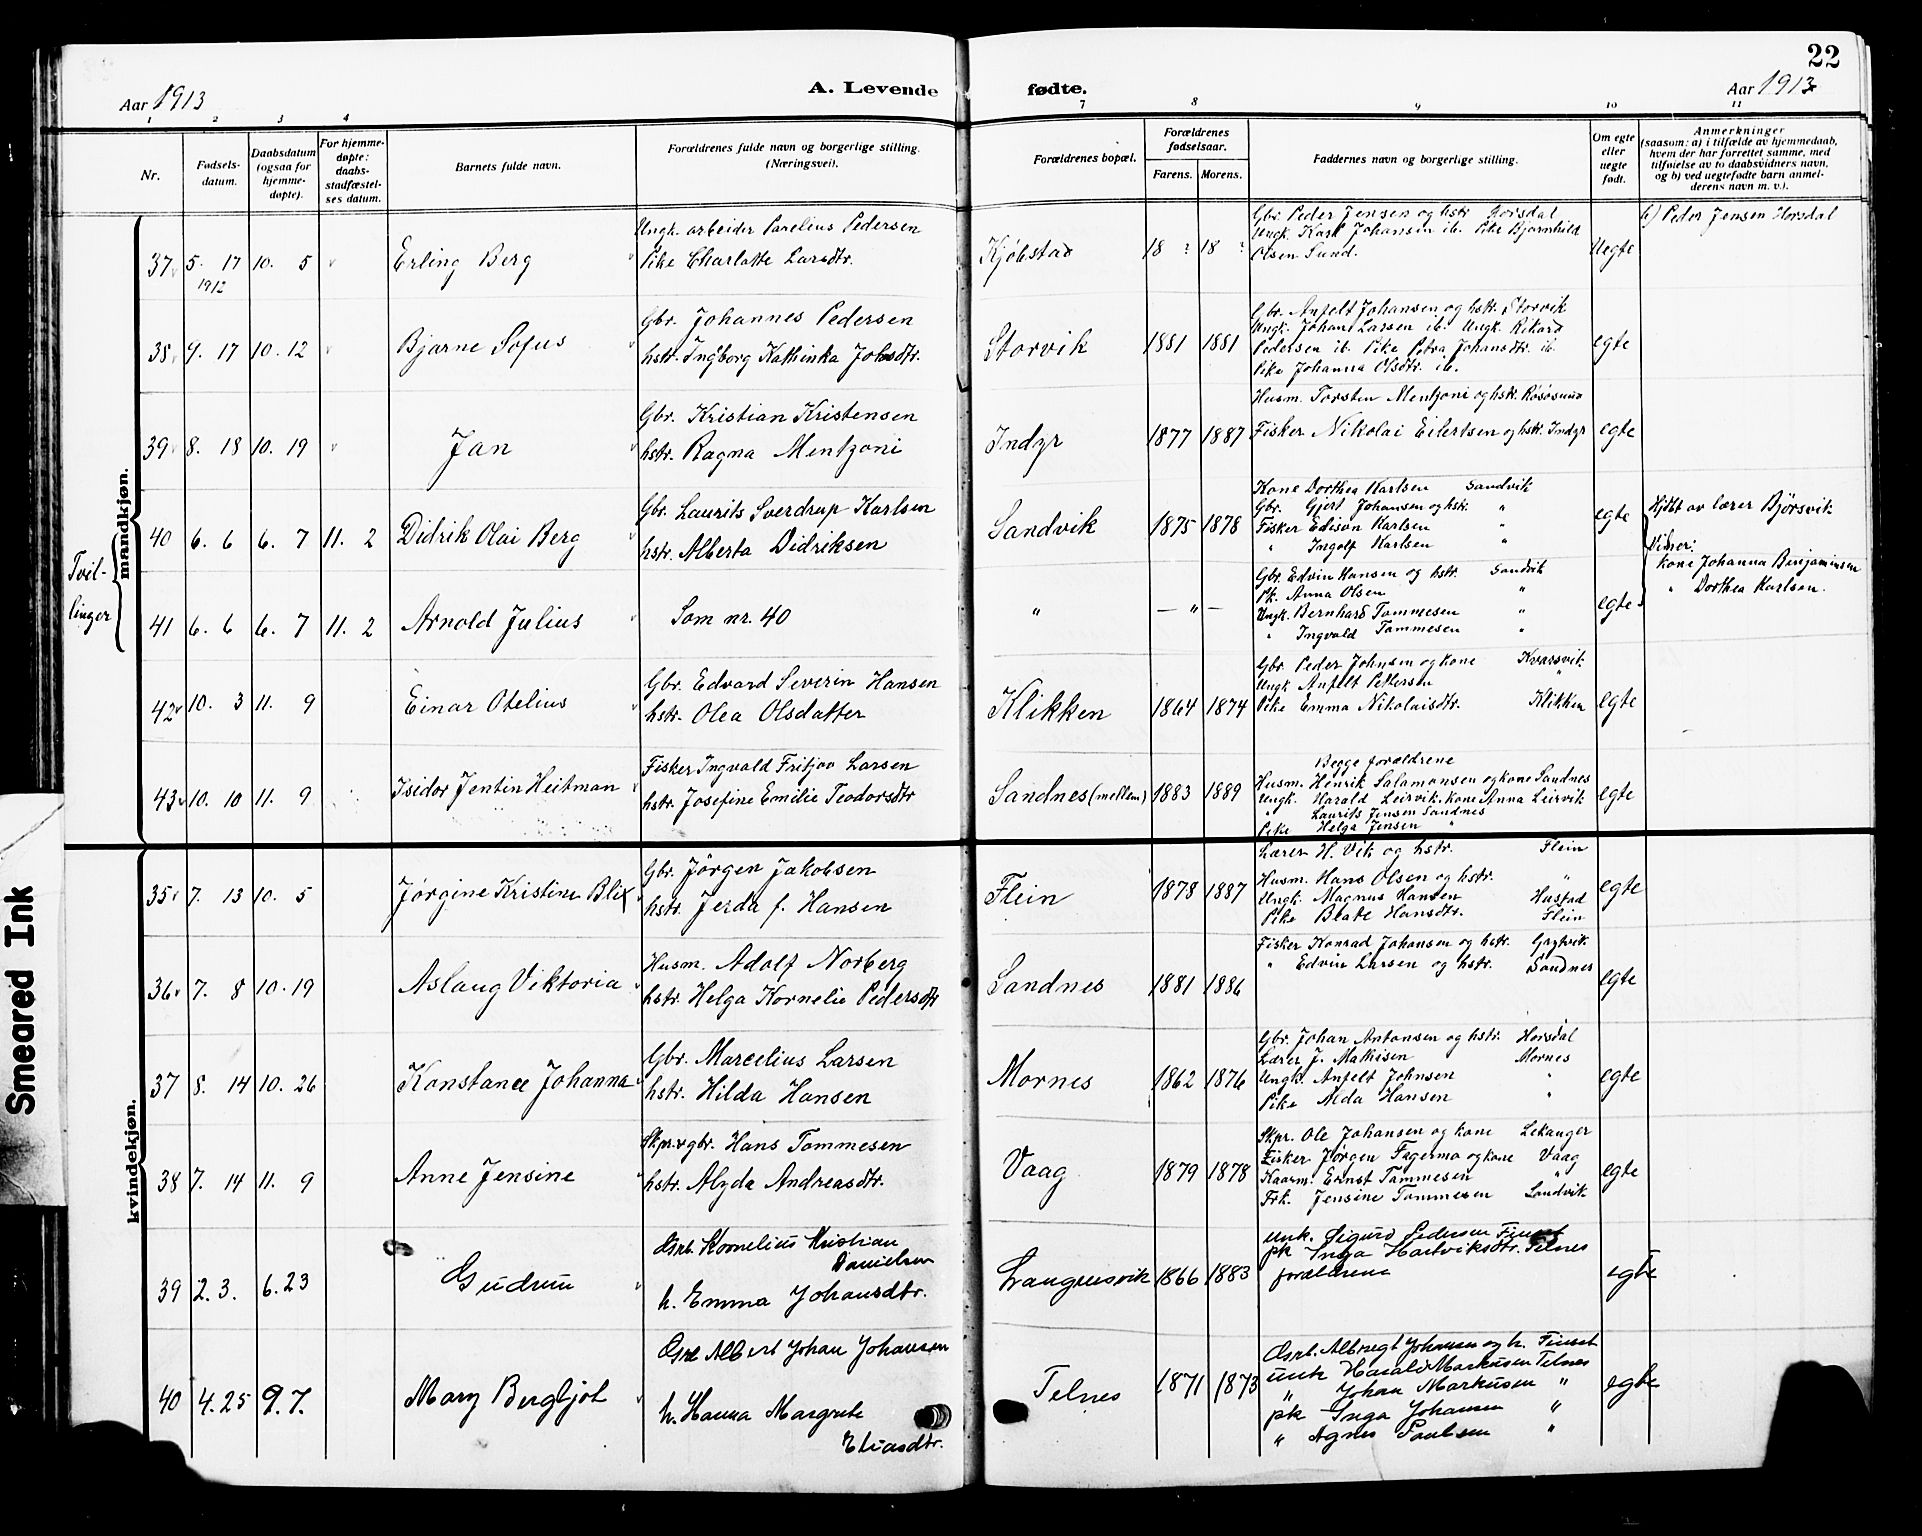 22
Aar 1913
A. Levende
fødte.
Aar 1913
1 2 3 4 7 8 9 10 11
Nr.
Fødsels-
datum.
Daabsdatum
(ogsaa for
hjemme-
døpte).
For hjemme-
døpte:
daabs-
stadfæstel-
ses datum.
Barnets fulde navn.
Forældrenes fulde navn og borgerlige stilling.
(Næringsvei).
Forældrenes bopæl.
Forældrenes
fødselsaar.
Farens. Morens.
Faddernes navn og borgerlige stilling.
Om egte
eller
uegte
født.
Anmerkninger
(saasom: a) i tilfælde av hjemmedaab,
hvem der har forrettet samme, med
tilføielse av to daabsvidners navn,
og b) ved uegtefødte barn anmel-
derens navn m. v.).
mandkjøn.
37 5. 17 10. 5 Erling Berg
1912
Ungk. arbeider Parelius Pedersen
Pike Charlotte Larsdtr.
Kjøbstad 18 ? 18 ?
Gbr. Peder Jensen og hstr. Horsdal
Ungk. Karl Johansen ib. Pike Bjarnhild
Olsen Sund.
Uegte
b) Peder Jensen Horsdal
38 7. 17 10. 12 Bjarne Sofus
Gbr. Johannes Pedersen
hstr. Ingborg Kathinka Johsdtr.
Storvik 1881 1881
Gbr. Anfelt Johansen og hstr. Storvik
Ungk. Johan Larsen ib. Ungk. Rikard
Pedersen ib. Pike Petra Johansdtr. ib.
Pike Johanna Olsdtr. ib.
egte
39 8. 18 10. 19 Jan
Gbr. Kristian Kristensen
hstr. Ragna Mentzoni
Indyr 1877 1887
Husm. Torsten Mentzoni og hstr. Røsøsund
Fisker Nikolai Eilertsen og hstr. Indyr
egte
Tvil-
linger
40 6. 6 6. 7 11. 2 Didrik Olai Berg
Gbr. Laurits Sverdrup Karlsen
hstr. Alberta Didriksen
Sandvik 1875 1878
Kone Dorthea Karlsen Sandvik
Gbr. Gjert Johansen og hstr. "
Fisker Edison Karlsen "
" Ingolf Karlsen "
egte
Hjdbt av lærer Bjørsvik
Vidner:
kone Johanna Benjaminsen
" Dorthea Karlsen.
41 6. 6 6. 7 11. 2 Arnold Julius
Som nr. 40
" — " —
Gbr. Edvin Hansen og hstr. Sandvik
Pk. Anna Olsen "
Ungk. Bernhard Tommesen "
" Ingvald Tommesen "
egte
42 10. 3 11. 9 Einar Otelius
Gbr. Edvard Severin Hansen
hstr. Olea Olsdatter
Klikken 1864 1874
Gbr. Peder Johnsen og kone Kvarsvik
Ungk Anfelt Pettersen "
Pike Emma Nikolaisdtr. Klikken
egte
43 10. 10 11. 9 Isidor Jentin Heitman
Fisker Ingvald Fritjov Larsen
hstr. Josefine Emilie Teodorsdtr
Sandnes (mellem) 1883 1889
Begge forældrene
Husm. Henrik Salamonsen og kone Sandnes
Ungk. Harald Leirvik. kone Anna Leirvik
" Laurits Jensen Sandnes
Pike Helga Jensen "
egte
kvindekjøn.
35 7. 13 10. 5 Jørgine Kristine Blix
Gbr. Jørgen Jakobsen
hstr. Jerda f. Hansen
Flein 1878 1887
Lærer H. Vik og hstr. Flein
Husm. Hans Olsen og hstr. "
Ungk. Magnus Hansen Husfad
Pike Beate Hansdtr. Flein
egte
36 7. 8 10. 19 Aslaug Viktoria
Husm. Adolf Norberg
hstr. Helga Kornelie Pedersdtr
Sandnes 1881 1886
Fisker Konrad Johansen og hstr. Grytvik
" Edvin Larsen og hstr. Sandnes
egte
37 8. 14 10. 26 Konstance Johanna
Gbr. Marcelius Larsen
hstr. Hilda Hansen
Mornes 1862 1876
Gbr. Johan Antonsen og hstr. Horsdal
Lærer J. Mathisen Mornes
Ungk. Anfelt Johnsen "
Pike Alda Hansen "
egte
38 7. 14 11. 9 Anne Jensine
Skpr. & gbr. Hans Tommesen
hstr. Alyda Andreasdtr.
Vaag 1879 1878
Skpr. Ole Johansen og kone Lekanger
Fisker Jørgen Fagermo og kone Vaag
Kaarm. Ernst Tommesen "
Frk. Jensine Tommesen Sandvik
egte
39 2. 3. 6. 23 Gudrun
Gsrb. Kornelius Kristian
Danielsen
h. Emma Johansdtr.
Langnesvik 1866 1883
unk. Sigurd Pedersen Finset
pk Inga Hartviksdtr. Telnes
forældrene
egte
40 4. 25 9. 7. Mary Bergljot
Gsrb Albert Johan Johansen
h. Hanna Margrete
Eliasdtr.
Telnes 1871 1873
Gsrb. Albregt Johansen og h. Finset
unk Harald Markusen Telnes
" Johan Markusen "
pk Inga Johansen "
" Agnes Paulsen "
egte
Smeared Ink